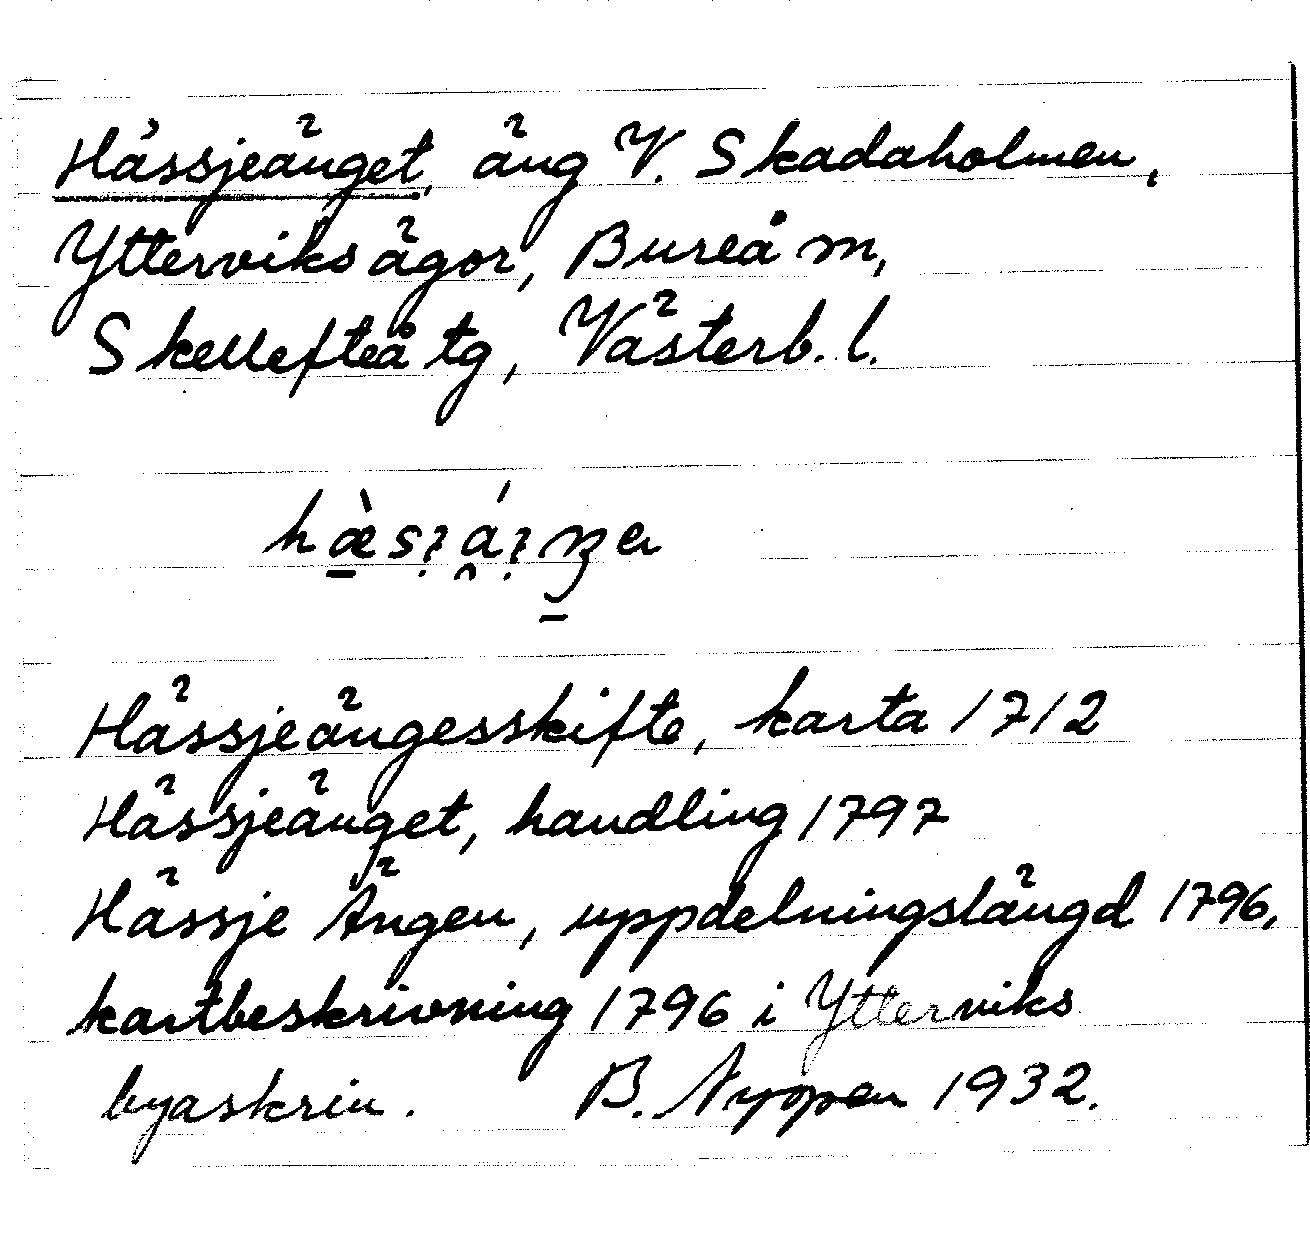 Hässjeänget, äng V. Skadaholmen,
Ytterviks ägor, Bureå m,
Skellefteå tg, Västerb. l.
Hässjeängesskifte, karta 1712
Hässjeänget, handling 1797
Hässje Ängen, uppdelningslängd 1796,
kartbeskrivning 1796 i Ytterviks
byaskrin. B. Nyppen 1932.